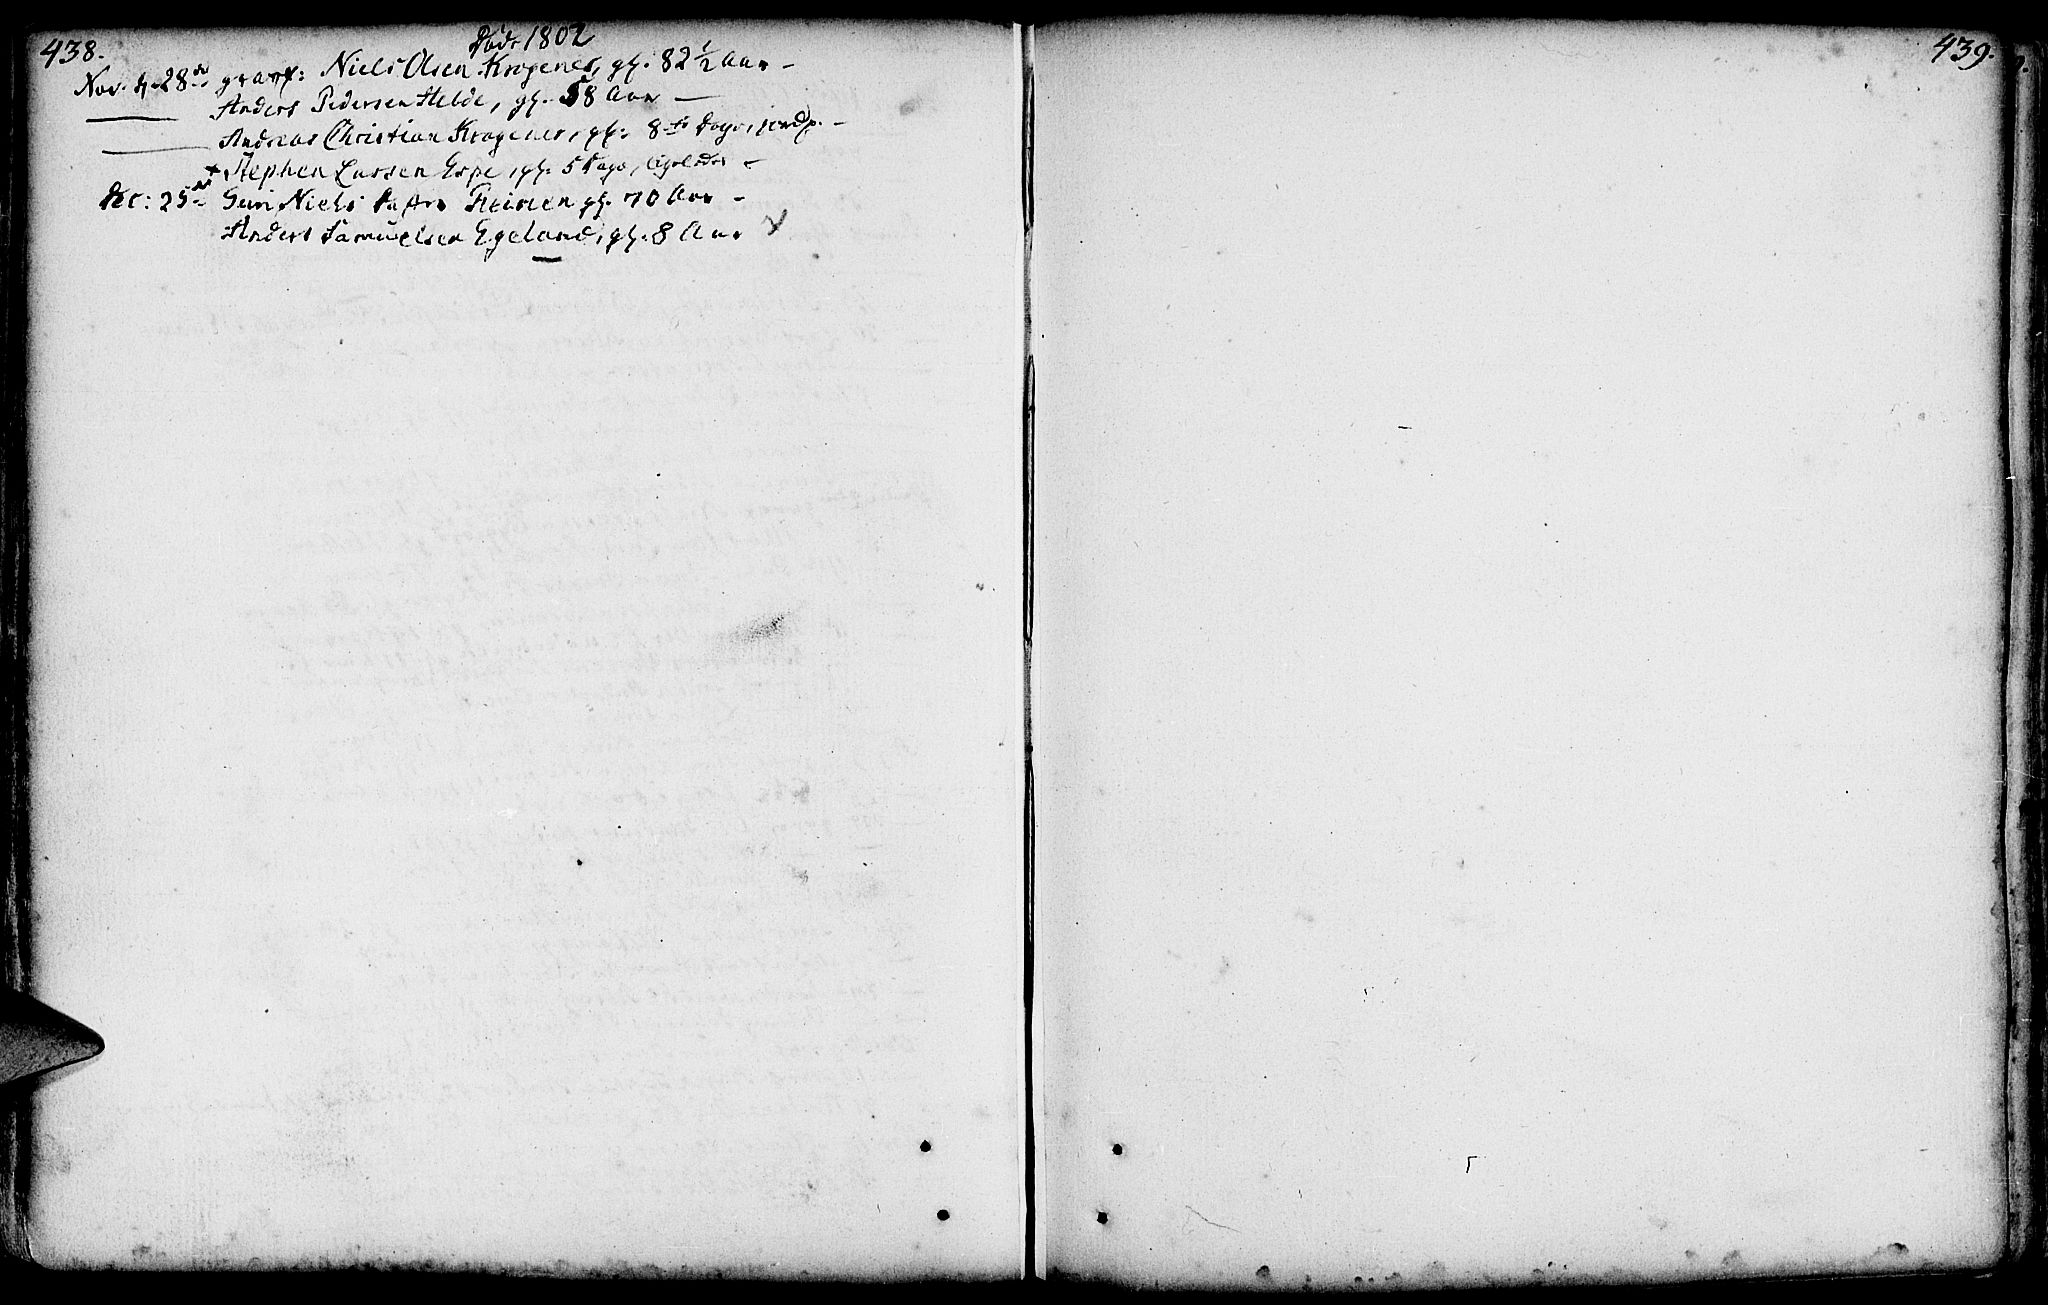 438.
Døde 1802
Nov. d. 28de gravf: Niels Olsen Kragenes, gl. 82 1/2 Aar -
Anders Pedersen Helde, gl. 58 Aar -
Andreas Christian Kragenes, gl: 8te Dage, -
+ Stephen Larsen Espe, gl. 5 Dage, ligeledes -
Dec: 25de Guri Niels Datter gl. 70 Aar -
Anders Samuelsen Egeland, gl. 8 Aar
439.